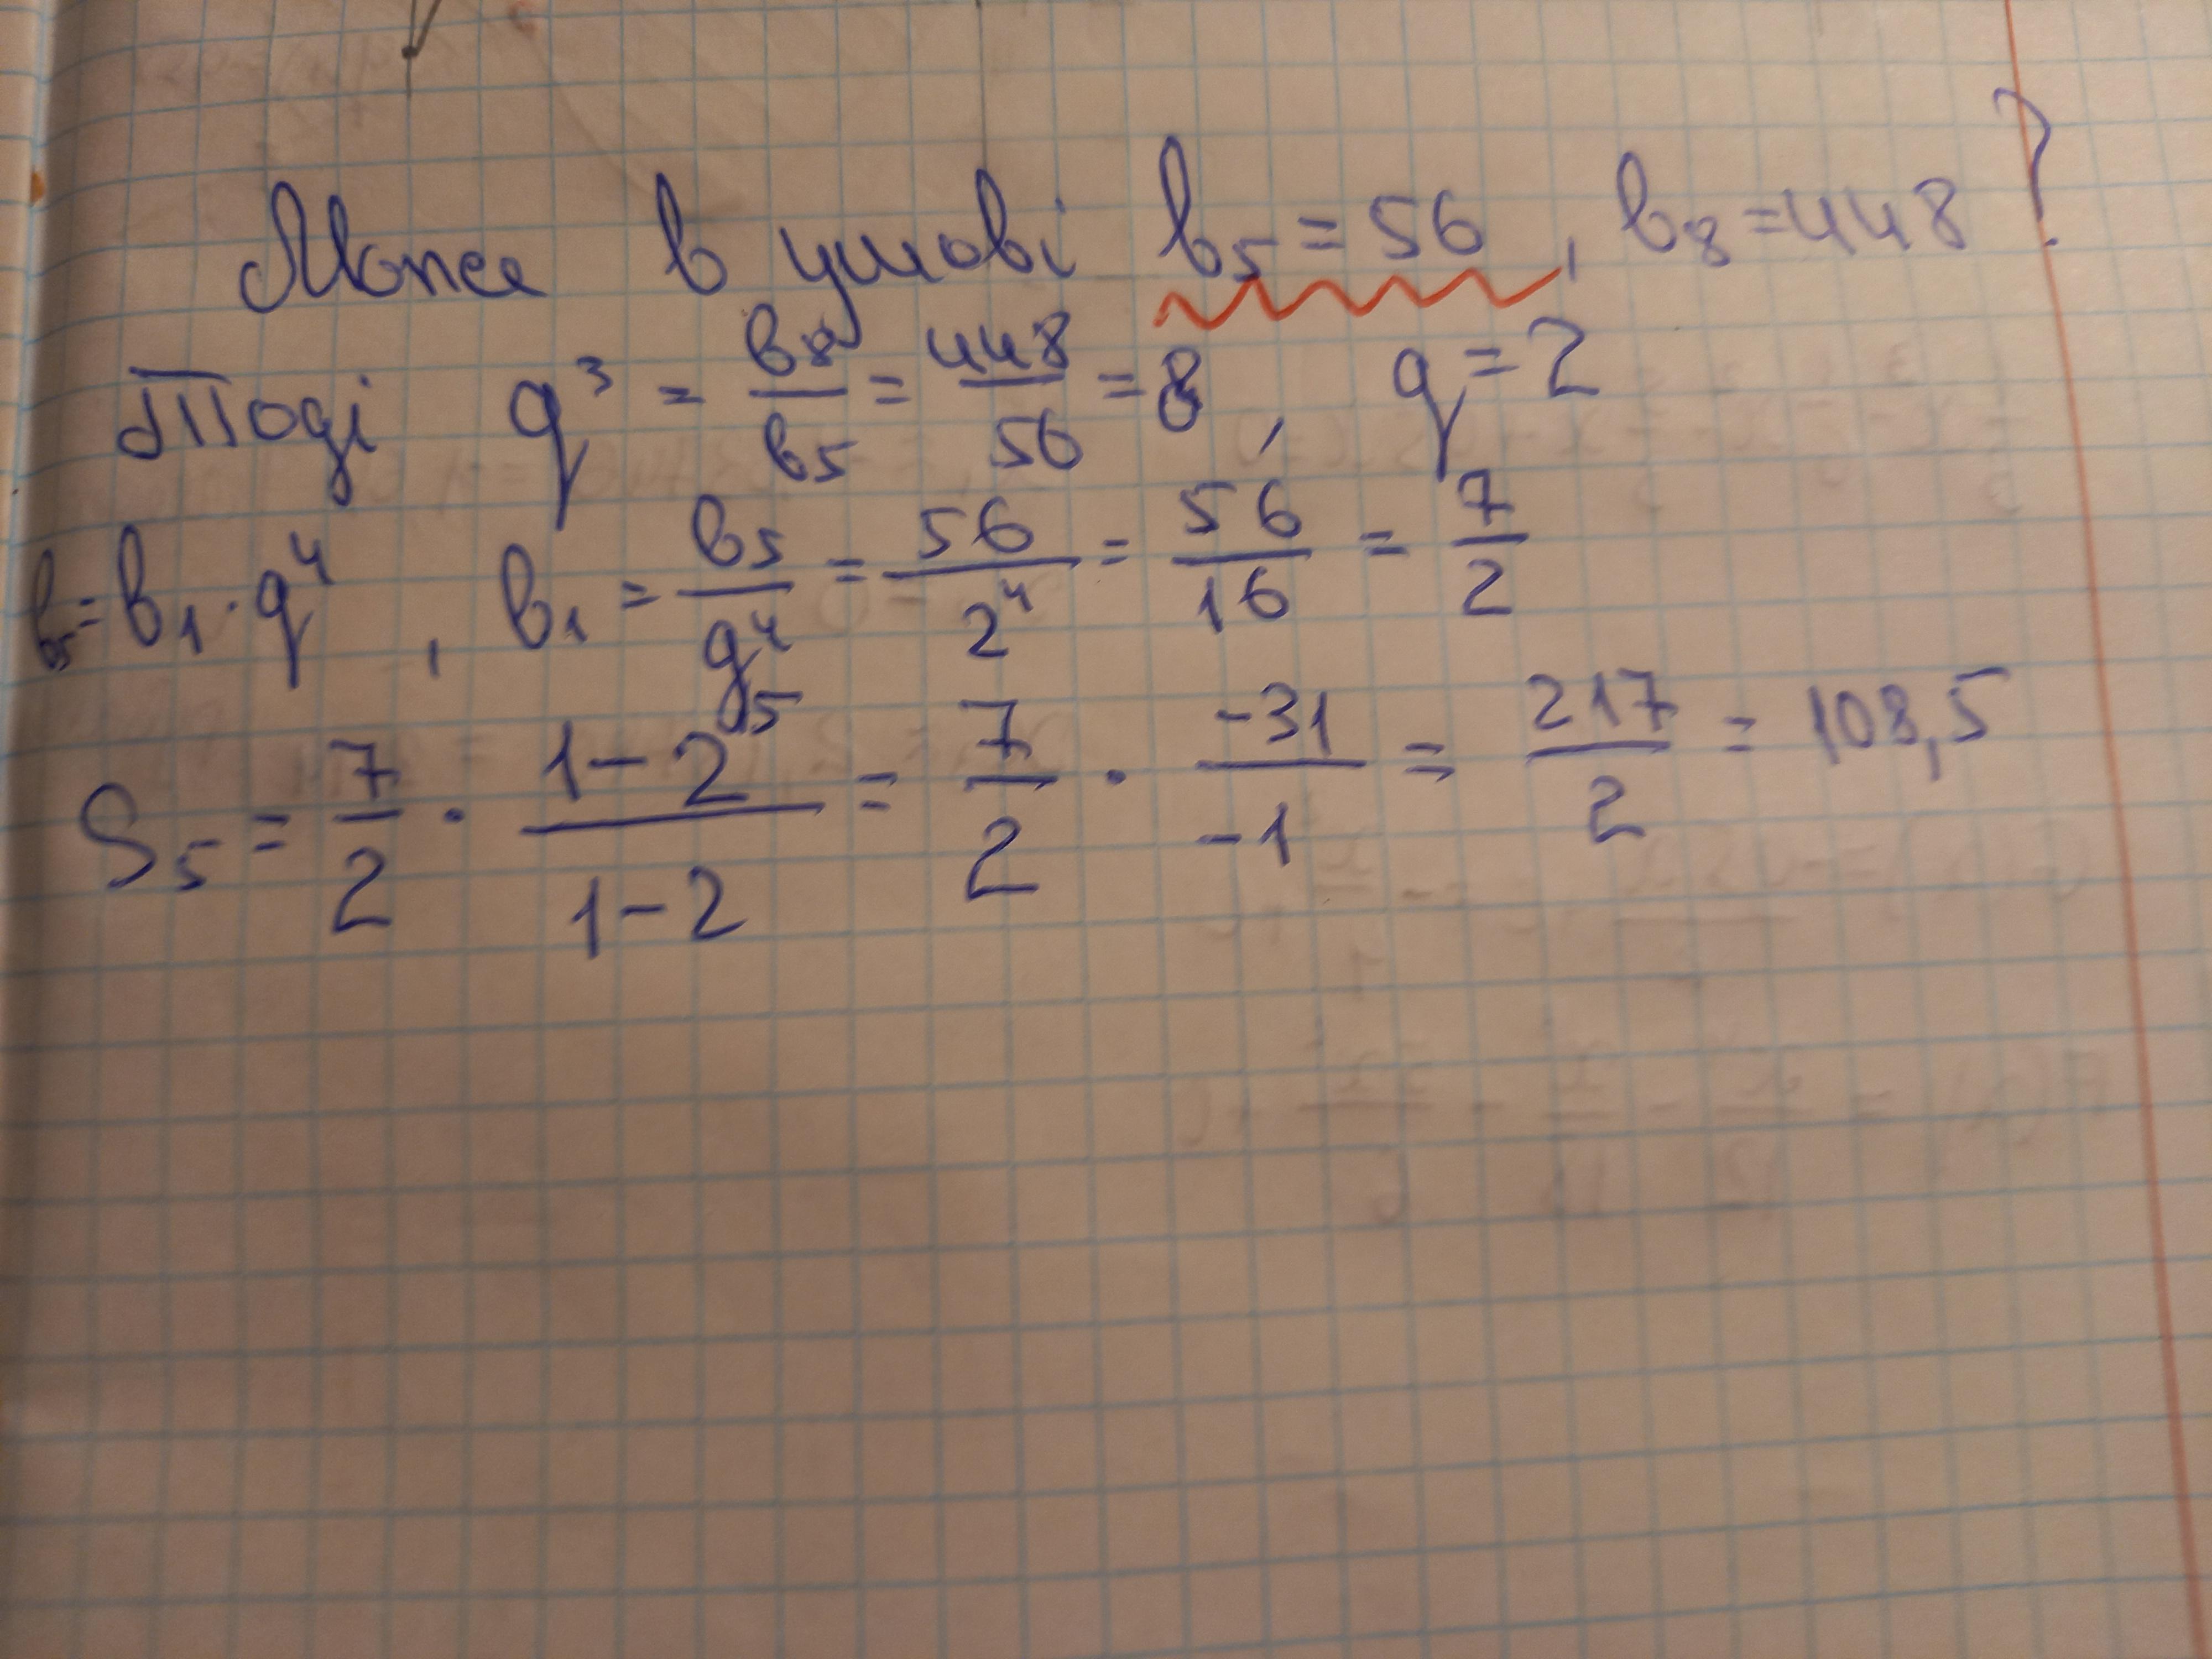 Може в умові b₅ = 56, b₈ = 448?
Тоді q³ = b₈/b₅ = 448/56 = 8, q = 2
b₅ = b₁ · q⁴, b₁ = b₅/q⁴ = 56/2⁴ = 56/16 = 7/2
S₅ = 7/2 · (1-2⁵)/(1-2) = 7/2 · -31/-1 = 217/2 = 108,5